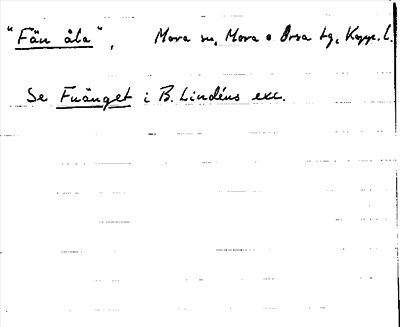 "Fän åla", Mora sn, Mora o Orsa tg, Kopp. l.
Se Fnänget i B. Lindéns exc.